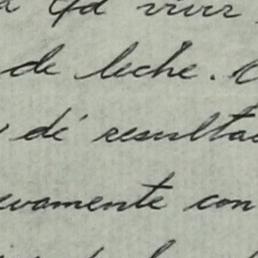 vivir
de leche.
dé resulta
vamente con